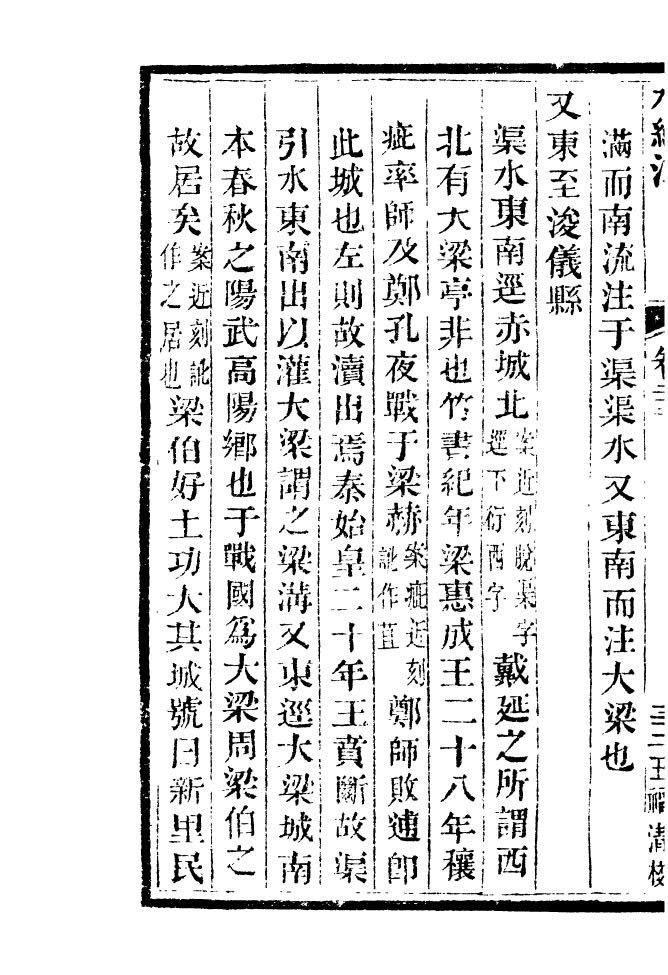 水經注 卷二十二 三二 王福清校
滿而南流注于渠渠水又東南而注大梁也
又東至浚儀縣
渠水東南逕赤城北案近刻脫渠字逕下衍西字戴延之所謂西
北有大梁亭非也竹書紀年梁惠成王二十八年穰
疵率師及鄭孔夜戰于梁赫案疵近刻訛作苴鄭師敗逋卽
此城也左則故瀆出焉秦始皇二十年王賁斷故渠
引水東南出以灌大梁謂之梁溝又東逕大梁城南
本春秋之陽武高陽鄉也于戰國爲大梁周梁伯之
故居矣案近刻訛作之居也梁伯好土功大其城號曰新里民